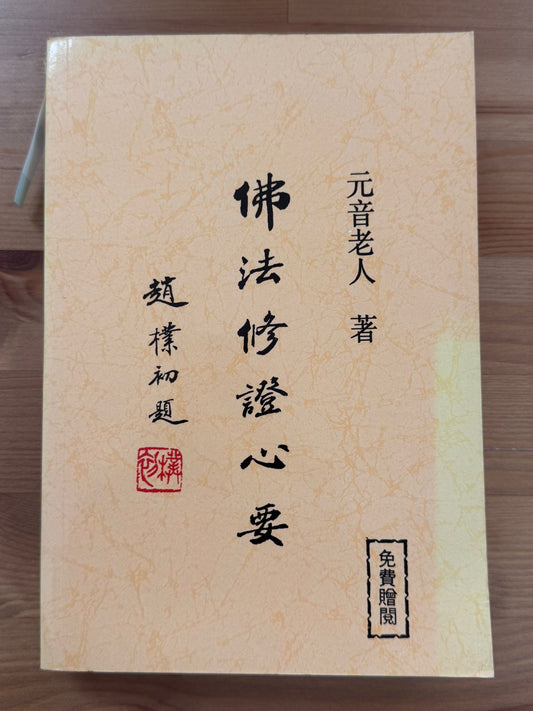 元音老人 著
佛法修證心要
趙樸初題
樸初
免費贈閱